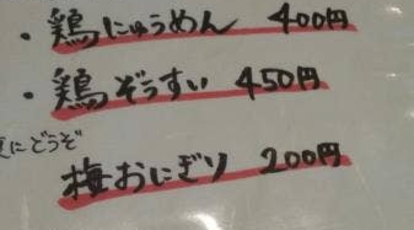 ・鶏にゅうめん 400円
・鶏ぞうすい 450円
にどうぞ
梅おにぎり 200円